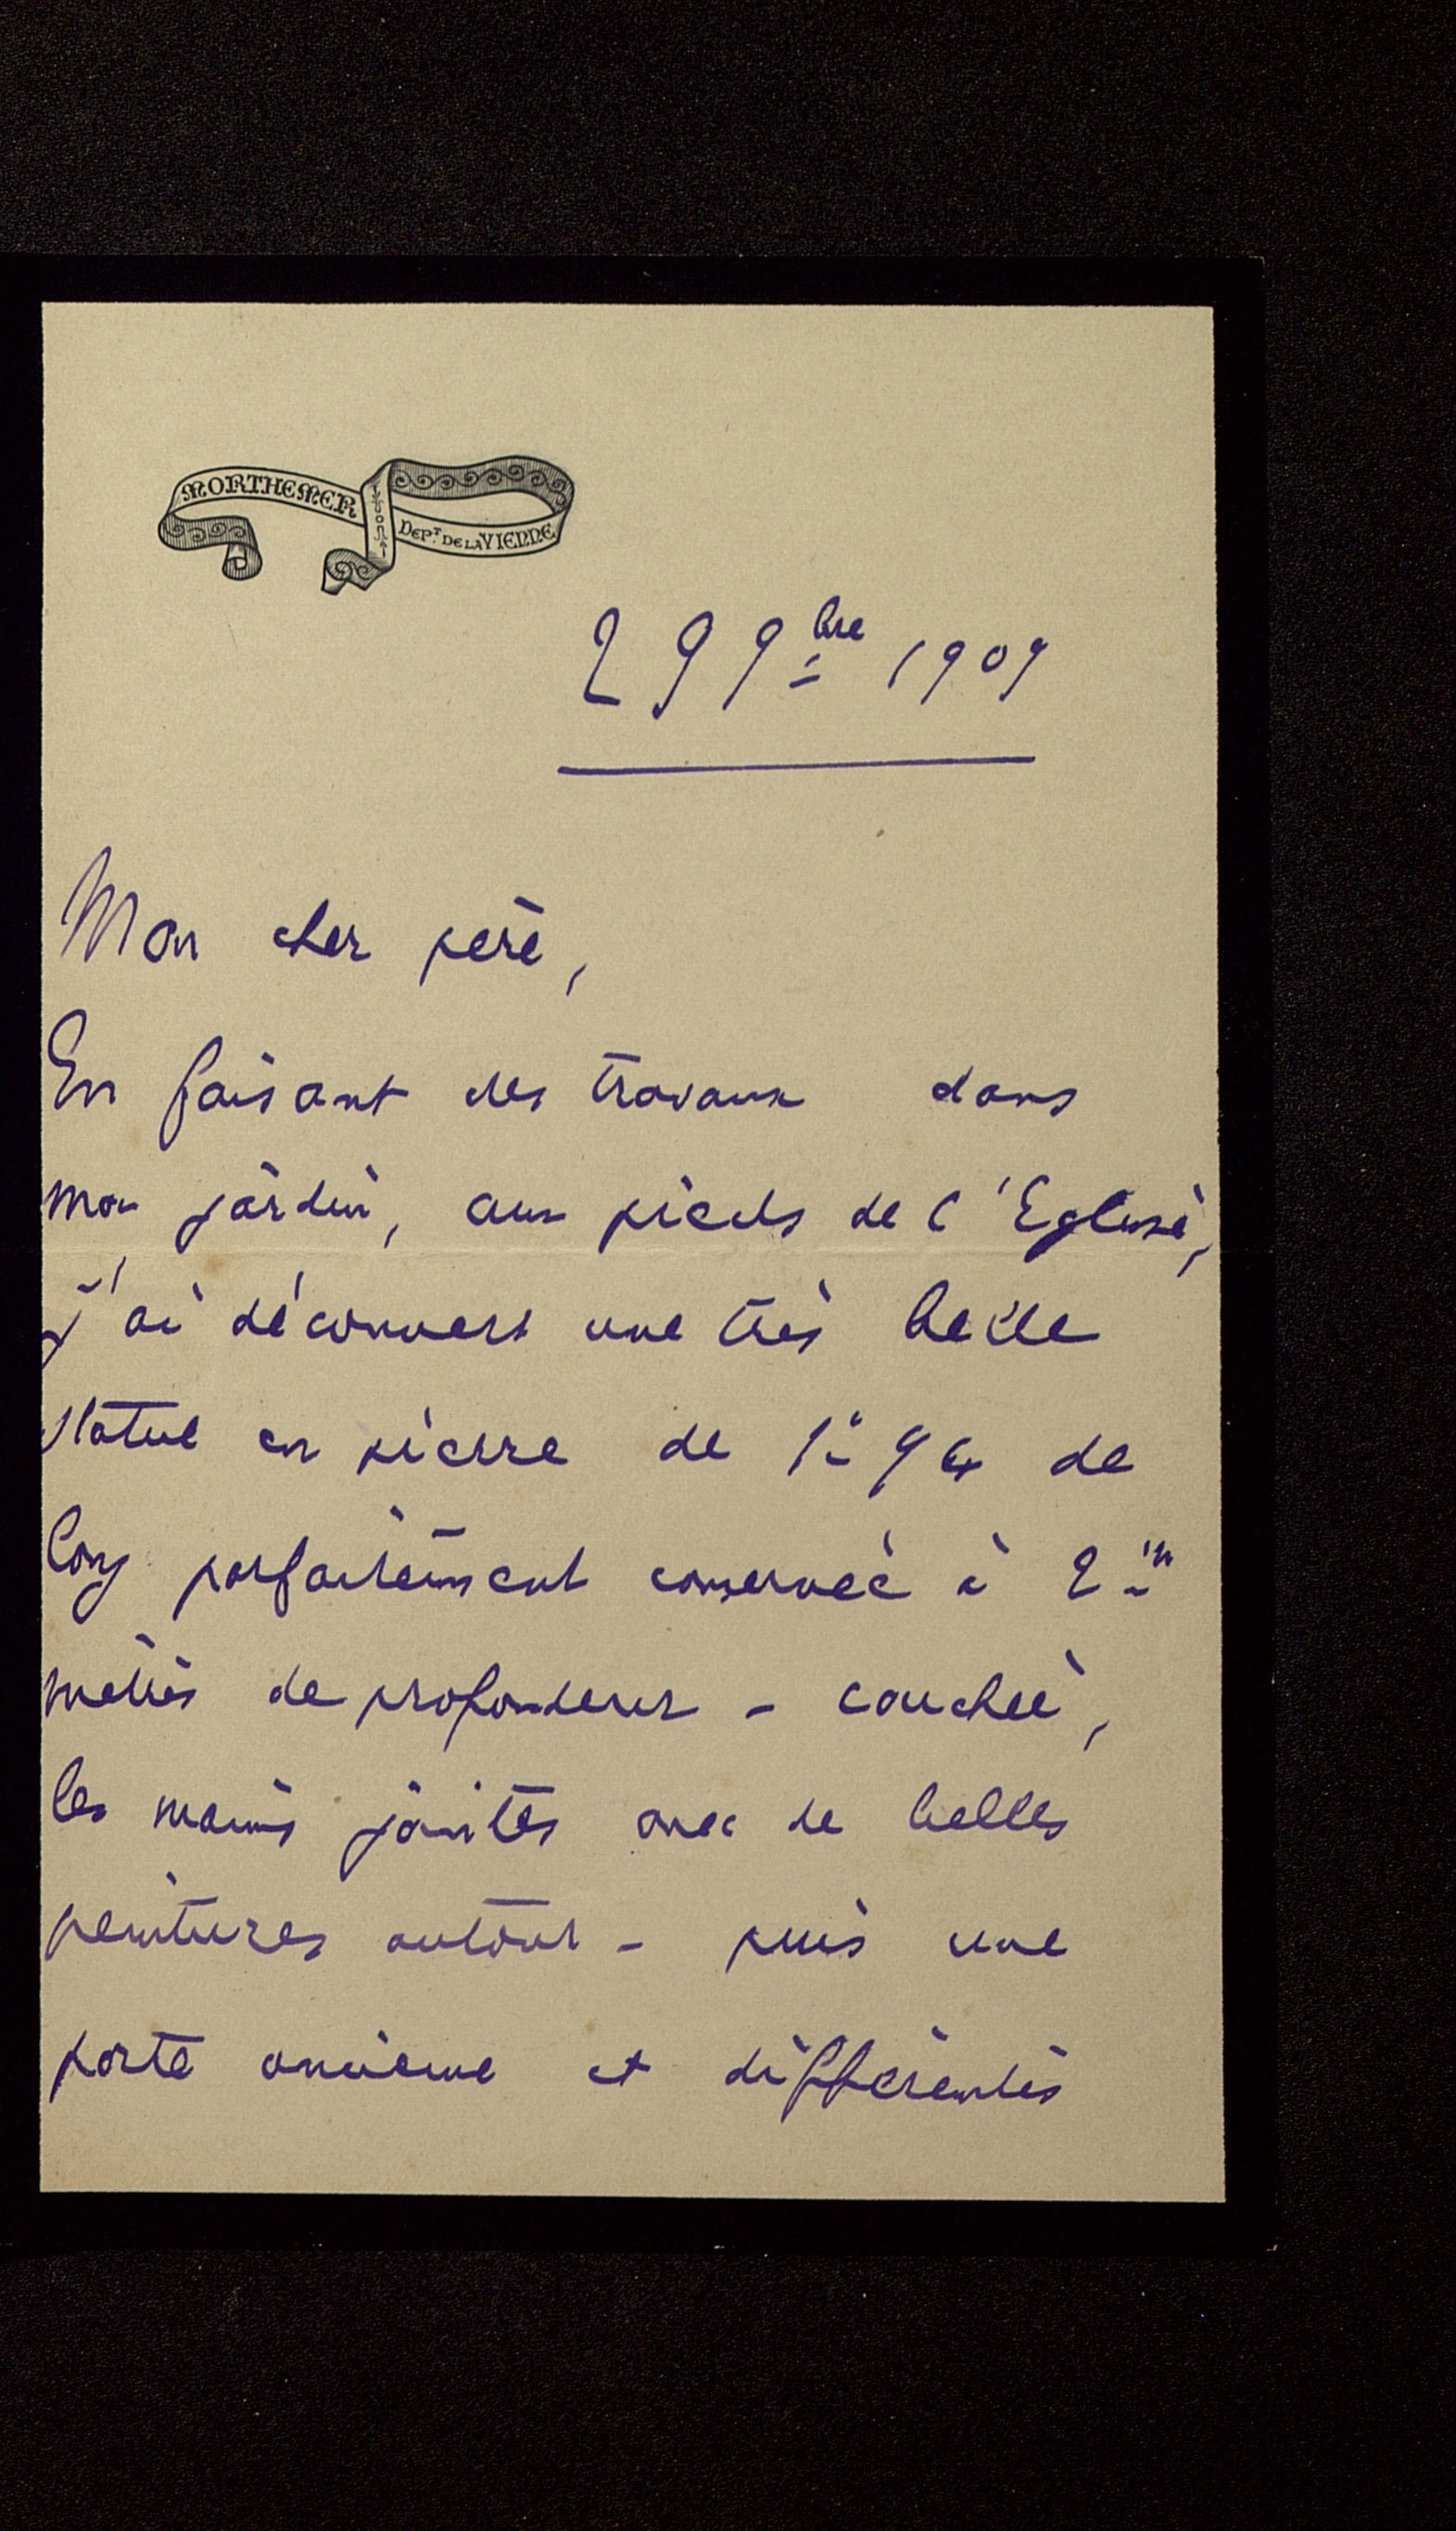 MORTHEMER
DEPT. DE LA VIENNE
29 9bre 1909
Mon cher père,
En faisant des travaux dans
mon jardin, aux pieds de l'Eglise,
j'ai découvert une très belle
statue en pierre de 1m 94 de
long parfaitement conservée à 2m
mètres de profondeur - couchée,
les mains jointes avec de belles
peintures autour - puis une
porte ancienne et différentes